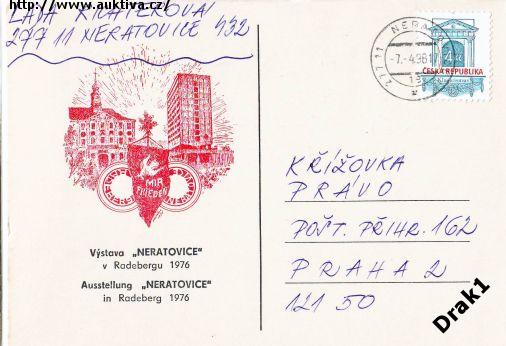 https://www.auktiva.cz/
LADA KRATĚROVÁ
277 11 NERATOVICE 432
NERATO
277 11
-7.-4.96-17
KČ
ČESKÁ REPUBLIKA
MÍR
FRIEDEN
KŘÍŽOVKA
PRÁVO
POŠT. PŘIHR. 162
PRAHA 2
121 50
Výstava „NERATOVICE"
v Radebergu 1976
Ausstellung „NERATOVICE"
in Radeberg 1976
Drak1